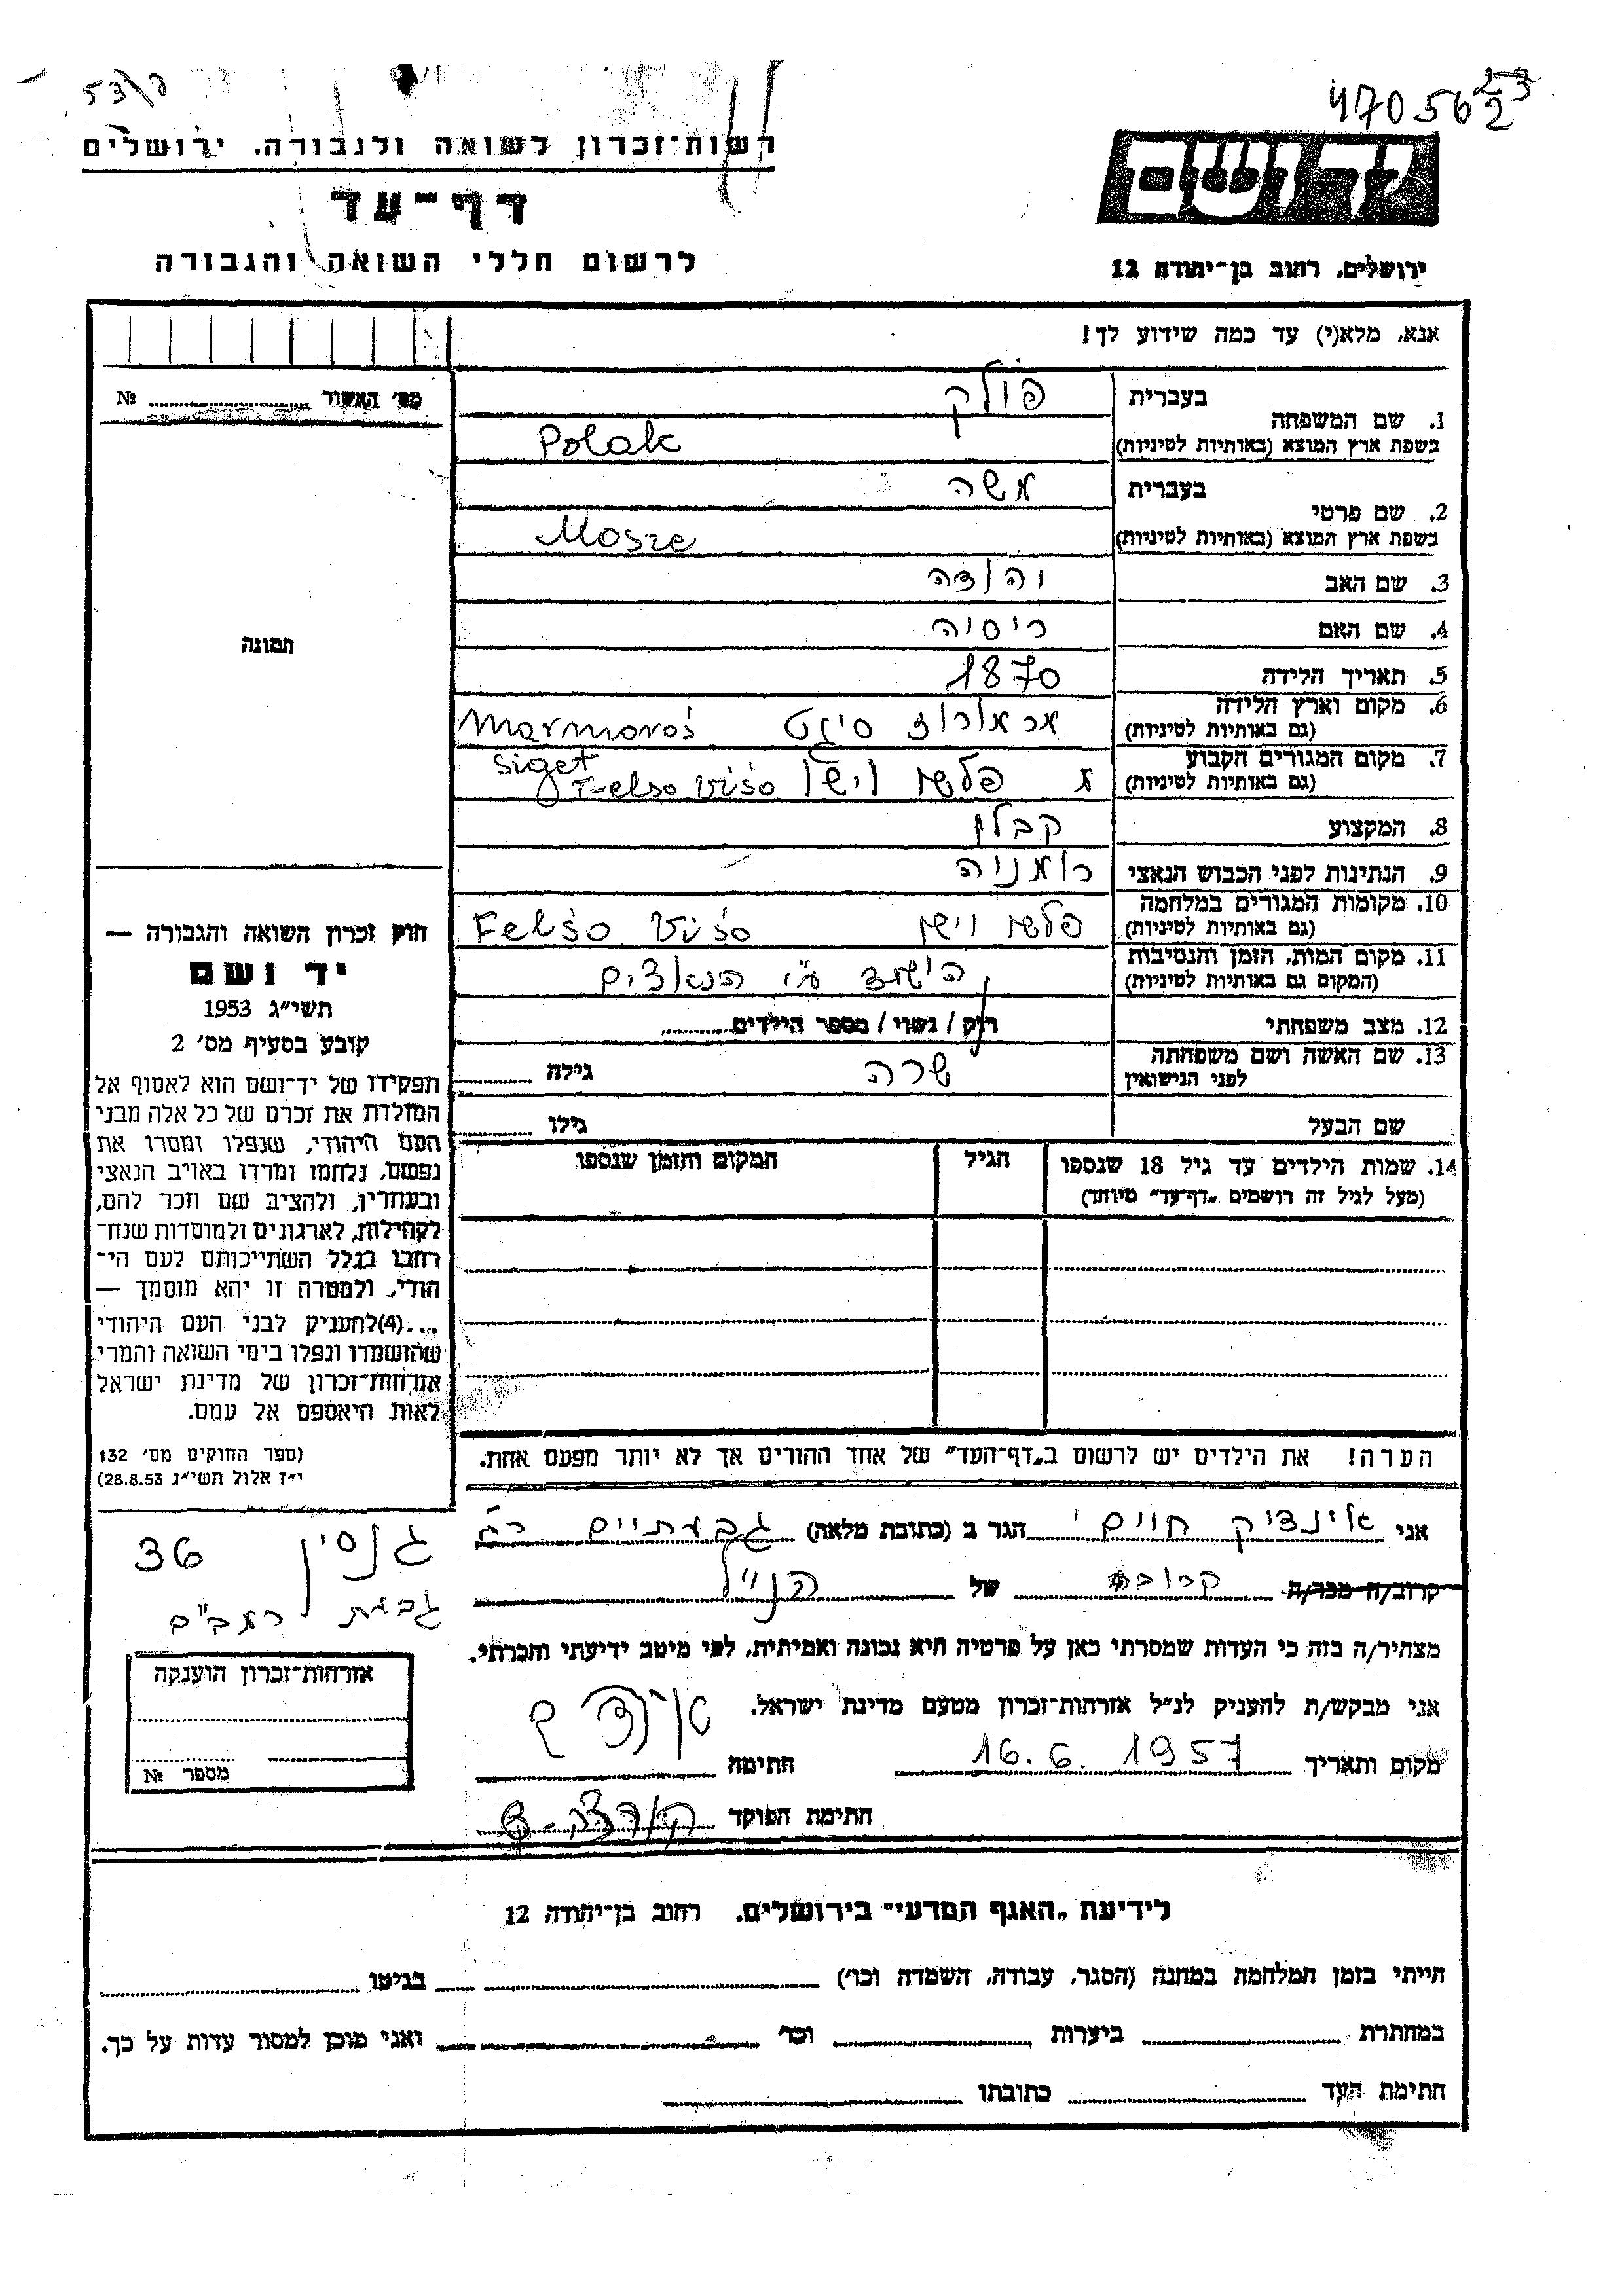 53/8
4705623
2
רשות־זכרון לשואה ולגבורה, ירושלים
דף־עד
לרשום חללי השואה והגבורה
יד ושם
ירושלים, רחוב בן־יהודה 12
אנא, מלא(י) עד כמה שידוע לך!
מס' האשור № 
בעברית פולק
1. שם המשפחה
בשפת ארץ המוצא (באותיות לטיניות) Polak
בעברית משה
2. שם פרטי
בשפת ארץ המוצא (באותיות לטיניות) Mosze
3. שם האב
4. שם האם
5. תאריך הלידה 1870
6. מקום וארץ הלידה סיגט Marmoroś
(גם באותיות לטיניות) Siget
7. מקום המגורים הקבוע
(גם באותיות לטיניות) פלשו וישו Felso Viśo
8. המקצוע קבלן
9. הנתינות לפני הכבוש הנאצי רומניה
10. מקומות המגורים במלחמה
(גם באותיות לטיניות) פלשו וישו Felśo Viśo
11. מקום המות, הזמן והנסיבות
(המקום גם באותיות לטיניות) ע"י הנאצים
12. מצב משפחתי רוק / נשוי / מספר הילדים
13. שם האשה ושם משפחתה
לפני הנישואין שרה גילה
שם הבעל גילו
14. שמות הילדים עד גיל 18 שנספו הגיל המקום והזמן שנספו
(מעל לגיל זה רושמים „דף־עד" מיוחד)
הערה! את הילדים יש לרשום ב„דף־העד" של אחד ההורים אך לא יותר מפעם אחת.
תמונה
חוק זכרון השואה והגבורה —
יד ושם
תשי"ג 1953
קובע בסעיף מס' 2
תפקידו של יד־ושם הוא לאסוף אל
המולדת את זכרם של כל אלה מבני
העם היהודי, שנפלו ומסרו את
נפשם, נלחמו ומרדו באויב הנאצי
ובעוזריו, ולהציב שם וזכר להם,
לקהילות, לארגונים ולמוסדות שנח־
רחבו בגלל השתייכותם לעם הי־
הודי, ולמטרה זו יהא מוסמך —
...(4)להעניק לבני העם היהודי
שהושמדו ונפלו בימי השואה והמרי
אזרחות־זכרון של מדינת ישראל
לאות היאספם אל עמם.
(ספר החוקים מס' 132
י"ז אלול תשי"ג 28.8.53)
אני הגר ב (כתובת מלאה) גבעתיים רח'
גנסין 36
גבעת רמב"ם
קרוב/ה מכר/ה קרובה של הנ"ל
מצהיר/ה בזה כי העדות שמסרתי כאן על פרטיה היא נכונה ואמיתית, לפי מיטב ידיעתי והכרתי.
אני מבקש/ת להעניק לנ"ל אזרחות־זכרון מטעם מדינת ישראל.
מקום ותאריך 16.6.1957 חתימה
חתימת הפוקד
אזרחות־זכרון הוענקה
מספר №
לידיעת „האגף המדעי" בירושלים, רחוב בן־יהודה 12
הייתי בזמן המלחמה במחנה (הסגר, עבודה, השמדה וכו') בגיטו
במחתרת ביערות וכו' ואני מוכן למסור עדות על כך.
חתימת העד כתובתו